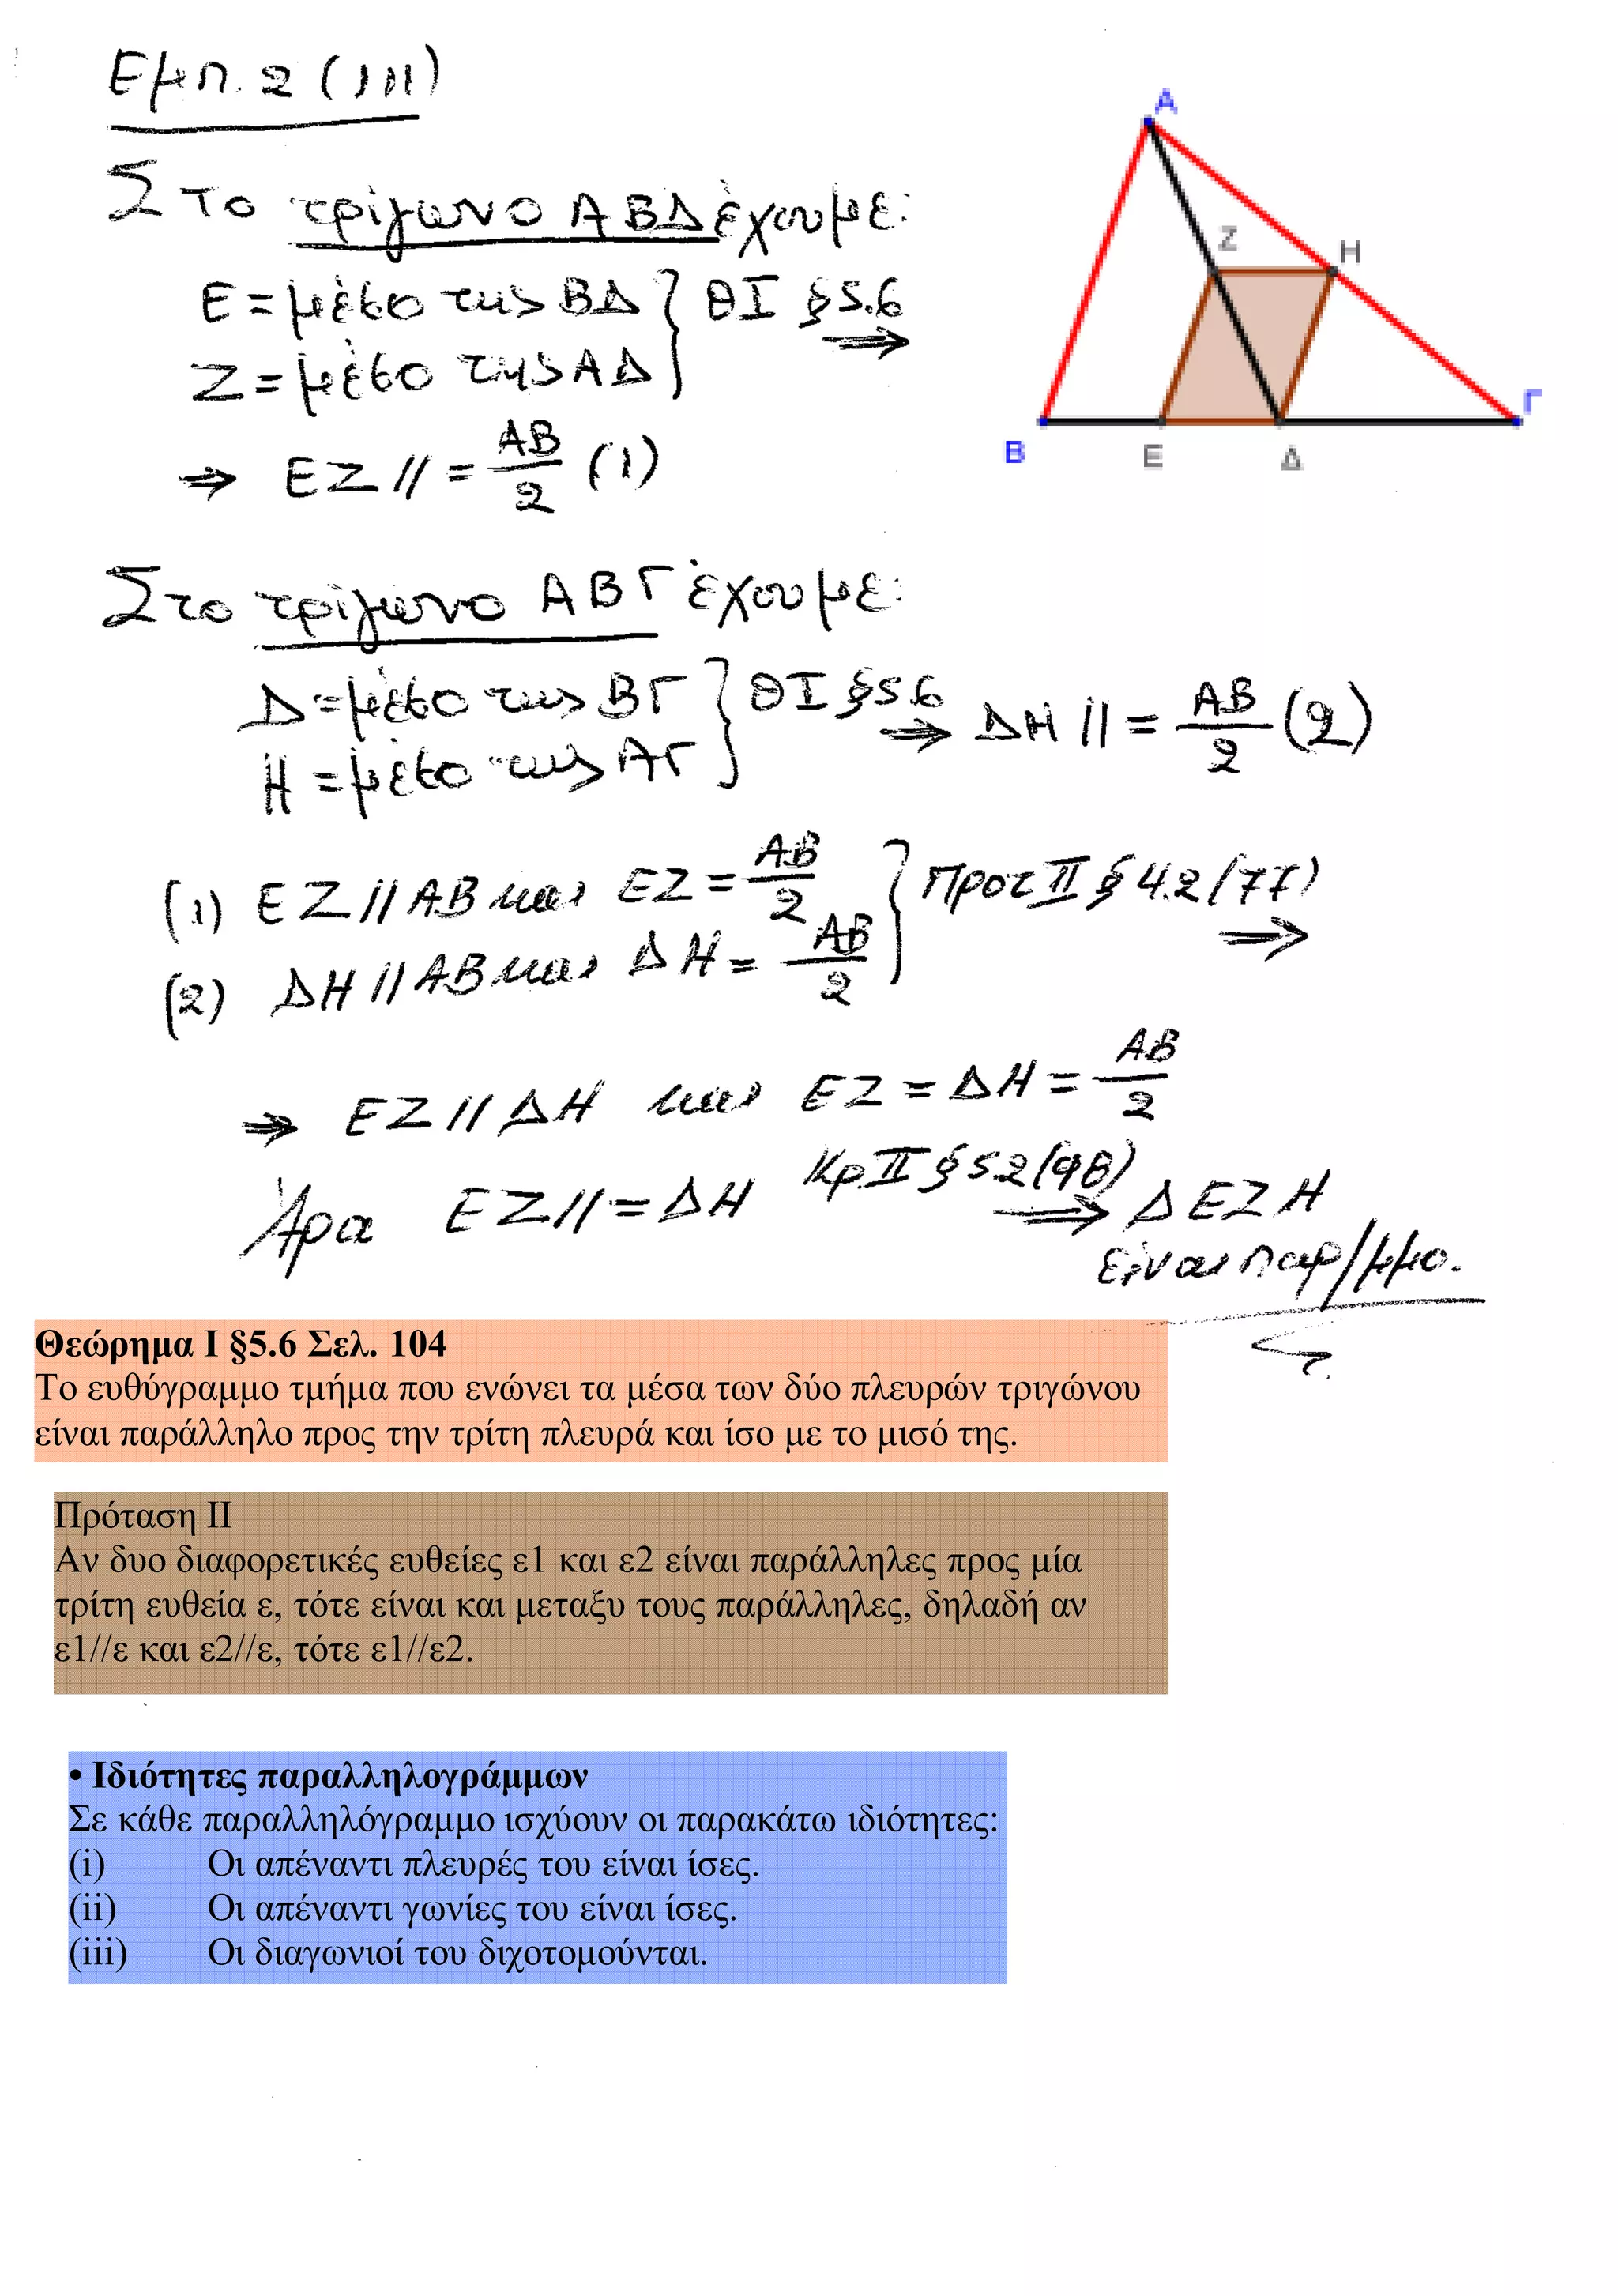 Εμπ. 2 (iii)
Στο τρίγωνο ΑΒΔ έχουμε:
Ε = μέσο της ΒΔ } ΘΙ §5.6
Ζ = μέσο της ΑΔ ⇒
⇒ ΕΖ // = ΑΒ/2 (1)
Α
Ζ
Η
Γ
Β
Ε
Δ
Στο τρίγωνο ΑΒΓ έχουμε:
Δ = μέσο της ΒΓ } ΘΙ §5.6 ⇒ ΔΗ // = ΑΒ/2 (2)
Η = μέσο της ΑΓ
(1) ΕΖ // ΑΒ και ΕΖ = ΑΒ/2 } Προτ ΙΙ § 4.2/77) ⇒
(2) ΔΗ // ΑΒ και ΔΗ = ΑΒ/2
⇒ ΕΖ // ΔΗ και ΕΖ = ΔΗ = ΑΒ/2
Άρα ΕΖ // = ΔΗ Κρ. ΙΙ § 5.2 (98) ⇒ ΔΕΖΗ
είναι παρ/μμο.
Θεώρημα Ι §5.6 Σελ. 104
Το ευθύγραμμο τμήμα που ενώνει τα μέσα των δύο πλευρών τριγώνου
είναι παράλληλο προς την τρίτη πλευρά και ίσο με το μισό της.
Πρόταση ΙΙ
Αν δυο διαφορετικές ευθείες ε1 και ε2 είναι παράλληλες προς μία
τρίτη ευθεία ε, τότε είναι και μεταξυ τους παράλληλες, δηλαδή αν
ε1//ε και ε2//ε, τότε ε1//ε2.
• Ιδιότητες παραλληλογράμμων
Σε κάθε παραλληλόγραμμο ισχύουν οι παρακάτω ιδιότητες:
(i) Οι απέναντι πλευρές του είναι ίσες.
(ii) Οι απέναντι γωνίες του είναι ίσες.
(iii) Οι διαγωνιοί του διχοτομούνται.